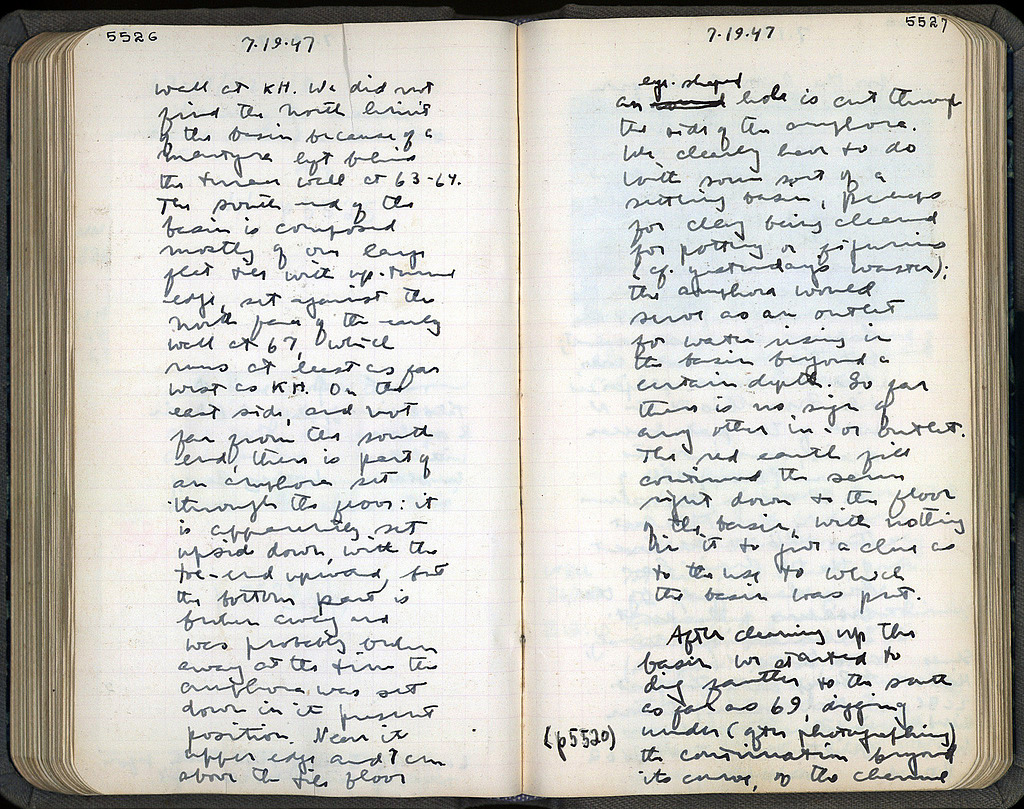 5526
7.19.47
wall at KH. We did not
find the north limit
of the basin because of a
martyra left behind
the terrace wall at 63-64.
The south end of the
basin is composed
mostly of one large
flat tile with up-turned
edge, set against the
north face of the early
wall at 67, which
runs at least as far
west as KH. On the
east side, and not
far from the south
end, there is part of
an amphora set
through the floor: it
is apparently set
upside down with the
toe-end upward, but
the bottom part is
broken away and
was probably broken
away at the time the
amphora was set
down in it present
position. Near it
upper edge and 7 cm
above the tile floor
5527
7.19.47
egg-shaped
an hole is cut through
the side of the amphora.
We clearly have to do
with some sort of a
settling basin, perhaps
for clay being cleaned
for potting or figurines
(cf. yesterday's waster);
the amphora would
serve as an outlet
for water rising in
the basin beyond a
certain depth. So far
there is no sign of
any other in- or outlet.
The red earth fill
continued the same
right down to the floor
of the basin, with nothing
in it to give a clue as
to the use to which
the basin was put.
After cleaning up the
basin we started to
dig further to the south
as far as 69, digging
(p5520) under (after photographing)
the continuation beyond
its curve, of the channel